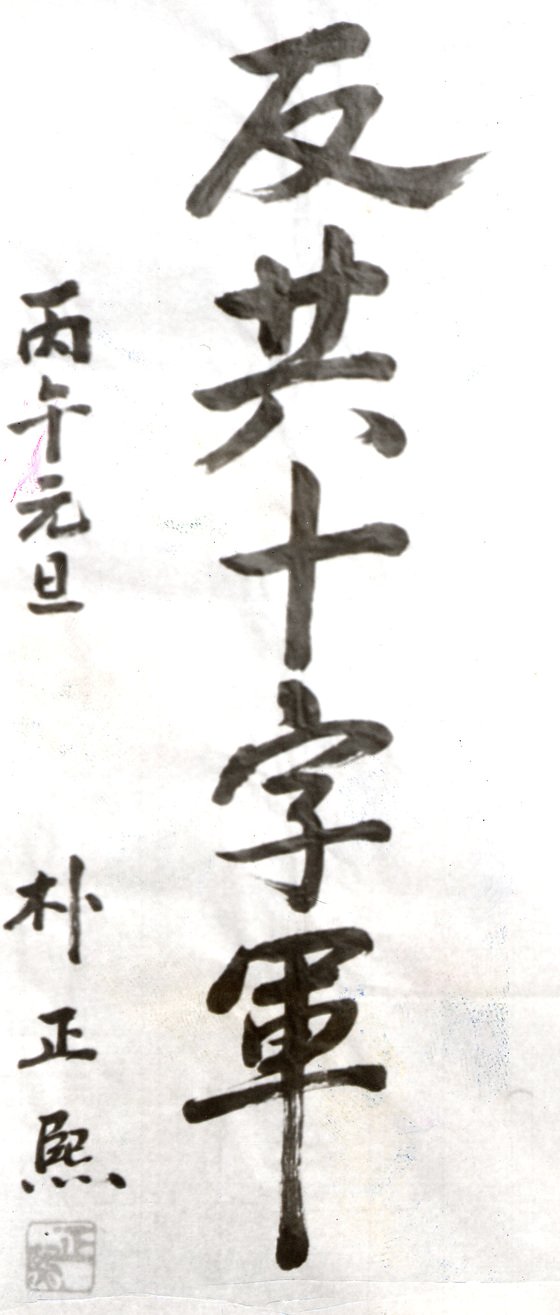 反共十字軍
丙午元旦
朴正熙